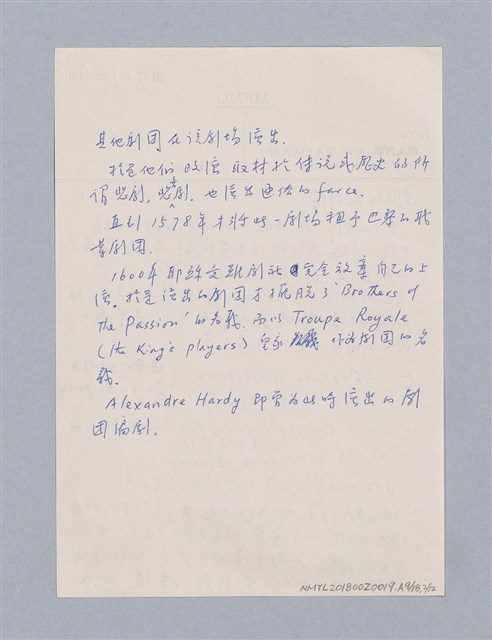 其他劇团在該劇場演出.
於是他們改演取材於傳說或歷史的所
謂悲劇, 悲喜劇. 也演出通俗的farce.
直到1578年才将此一劇場租予巴黎的職
業劇团.
1600年耶穌受難劇社完全放棄自己的上
演。於是演出的劇团才擺脱了'Brothers of
the Passion'的名義. 而以Troupe Royale
(the King's players) 皇家 作為劇团的名
義.
Alexandre Hardy即曾为此時演出的劇
团編劇.
NMTL20180020019.A9/18,2/12